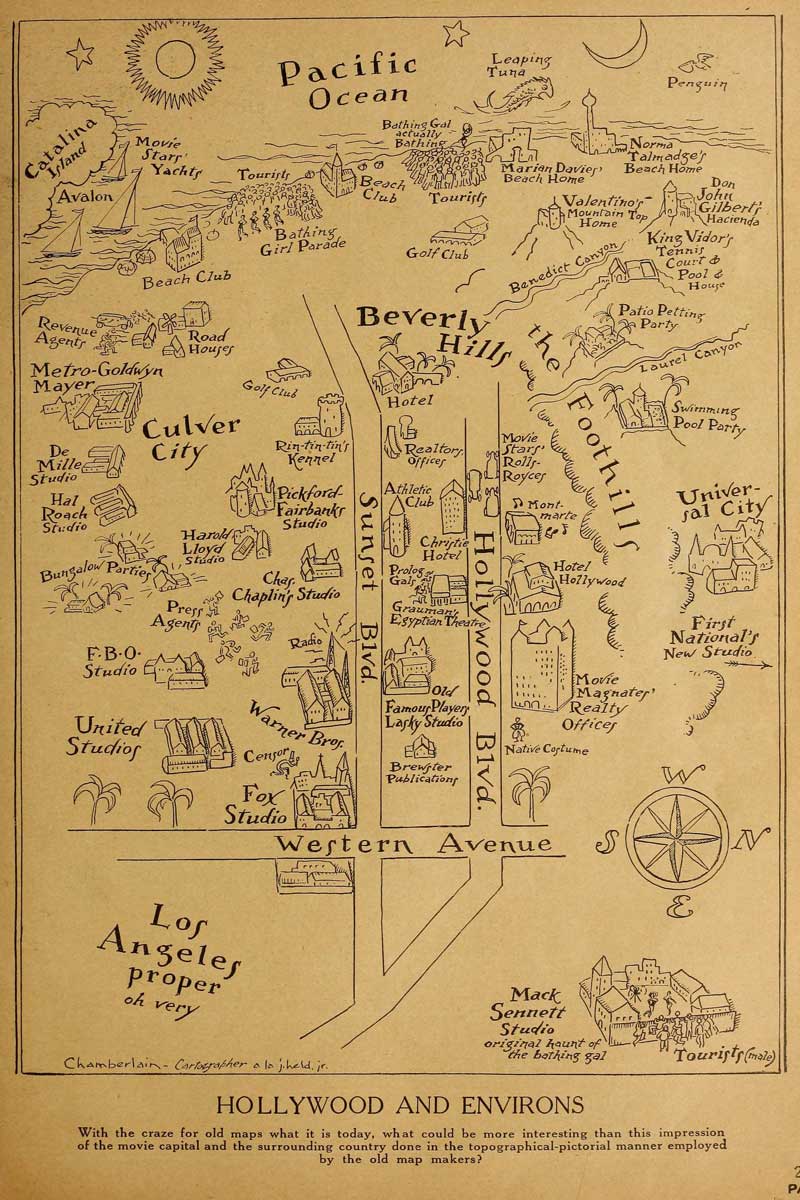 Pacific
Ocean
Leaping
Tuna
Penguin
Catalina
Island
Avalon
Movie
Stars'
Yachts
Tourists
Bathing
Girl Parade
Beach Club
Beach
Club
Bathing Gal
actually
Bathing
Tourists
Marian Davies'
Beach Home
Norma
Talmadge's
Beach Home
Golf Club
Valentino's
Mountain Top
Home
Don
John
Gilbert's
Hacienda
Benedict Canyon
King Vidor's
Tennis
Court &
Pool &
House
Revenue
Agents
Road
Houses
Beverly
Hills
Hotel
the
Foothills
Patio Petting
Party
Laurel Canyon
Swimming
Pool Party
Metro-Goldwyn
Mayer
Golf Club
Culver
City
Rin-tin-tin's
Kennel
De
Mille
Studio
Hal
Roach
Studio
Pickford-
Fairbanks
Studio
Harold
Lloyd
Studio
Bungalow Parties
Chas.
Chaplin's Studio
Press
Agents
Radio
F.B.O.
Studio
Warner Bros.
United
Studios
Censor
Fox
Studio
Sunset Blvd.
Realtors
Offices
Athletic
Club
Christie
Hotel
Prolog
Gals
Grauman's
Egyptian Theatre
Old
Famous Players
Lasky Studio
Brewster
Publications
Hollywood Blvd.
Movie
Stars'
Rolls-
Royces
Mont-
marte
Hotel
Hollywood
Movie
Magnates'
Realty
Offices
Native Costume
Univer-
sal City
First
National's
New Studio
W
S
N
E
Western Avenue
Los
Angeles
proper
oh very
Mack
Sennett
Studio
original haunt of
the bathing gal
Tourists (male)
Chamberlain - Cartografer a la j. held. jr.
HOLLYWOOD AND ENVIRONS
With the craze for old maps what it is today, what could be more interesting than this impression
of the movie capital and the surrounding country done in the topographical-pictorial manner employed
by the old map makers?